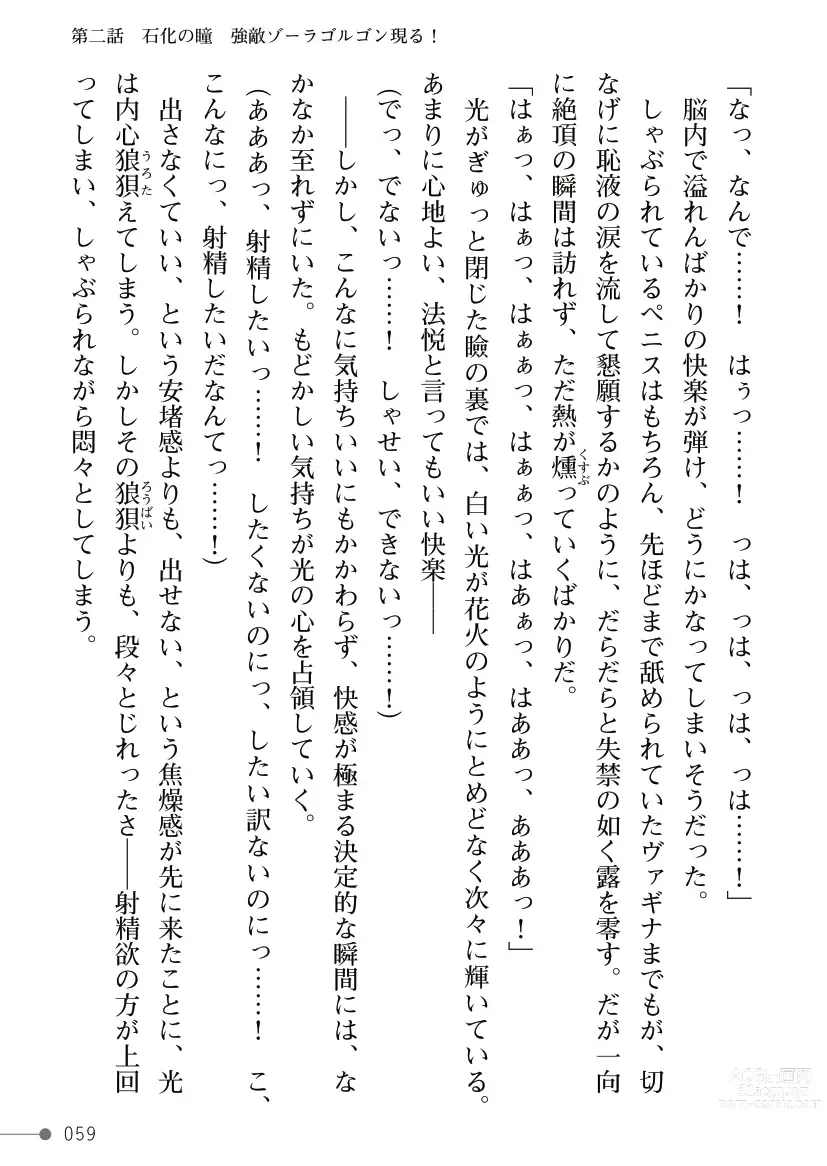 第二話　石化の瞳　強敵ゾーラゴルゴン現る！
「なっ、なんで……！　はぅっ……！　っは、っは、っは、っは……！」
脳内で溢れんばかりの快楽が弾け、どうにかなってしまいそうだった。
しゃぶられているペニスはもちろん、先ほどまで舐められていたヴァギナまでもが、切
なげに恥液の涙を流して懇願するかのように、だらだらと失禁の如く露を零す。だが一向
に絶頂の瞬間は訪れず、ただ熱が燻っていくばかりだ。
くすぶ
「はぁっ、はぁっ、はぁぁっ、はぁぁっ、はあぁっ、はああっ、あああっ！」
光がぎゅっと閉じた瞼の裏では、白い光が花火のようにとめどなく次々に輝いている。
あまりに心地よい、法悦と言ってもいい快楽――
（でっ、でないっ……！　しゃせい、できないっ……！）
――しかし、こんなに気持ちいいにもかかわらず、快感が極まる決定的な瞬間には、な
かなか至れずにいた。もどかしい気持ちが光の心を占領していく。
（あああっ、射精したいっ……！　したくないのにっ、したい訳ないのにっ……！　こ、
こんなにっ、射精したいだなんてっ……！）
出さなくていい、という安堵感よりも、出せない、という焦燥感が先に来たことに、光
は内心狼狽えてしまう。しかしその狼狽よりも、段々とじれったさ――射精欲の方が上回
うろた
ろうばい
ってしまい、しゃぶられながら悶々としてしまう。
059